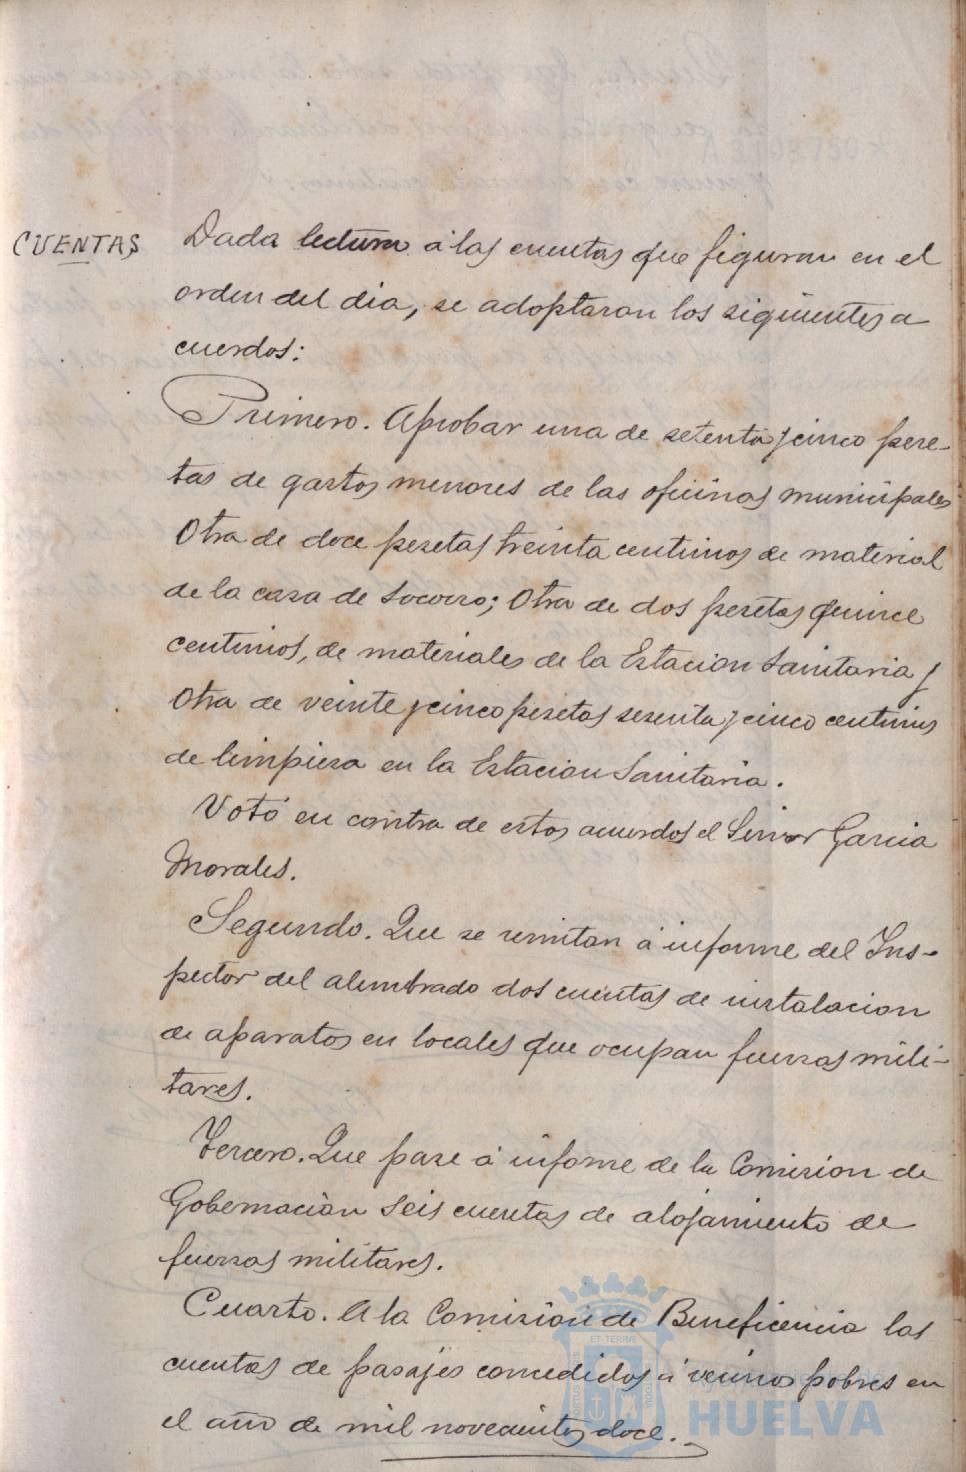 CUENTAS
Dada lectura á las cuentas que figuran en el
orden del dia, se adoptaron los siguientes a
cuerdos:
Primero. Aprobar una de setenta y cinco pese-
tas de gastos menores de las oficinas municipales
Otra de doce pesetas treinta centimos de material
de la casa de Socorro; Otra de dos pesetas quince
centimos, de materiales de la Estacion Sanitaria y
Otra de veinte y cinco pesetas sesenta y cinco centimos
de limpieza en la Estacion Sanitaria.
Votó en contra de estos acuerdos el Señor Garcia
Morales.
Segundo. Que se remitan á informe del Ins-
pector del alumbrado dos cuentas de instalacion
de aparatos en locales que ocupan fuerzas mili-
tares.
Tercero. Que pase á informe de la Comision de
Gobernación seis cuentas de alojamiento de
fuerzas militares.
Cuarto. A la Comisión de Beneficencia las
cuentas de pasajes concedidos á vecinos pobres en
el año de mil novecientos doce.
ET TERRÆ
HUELVA